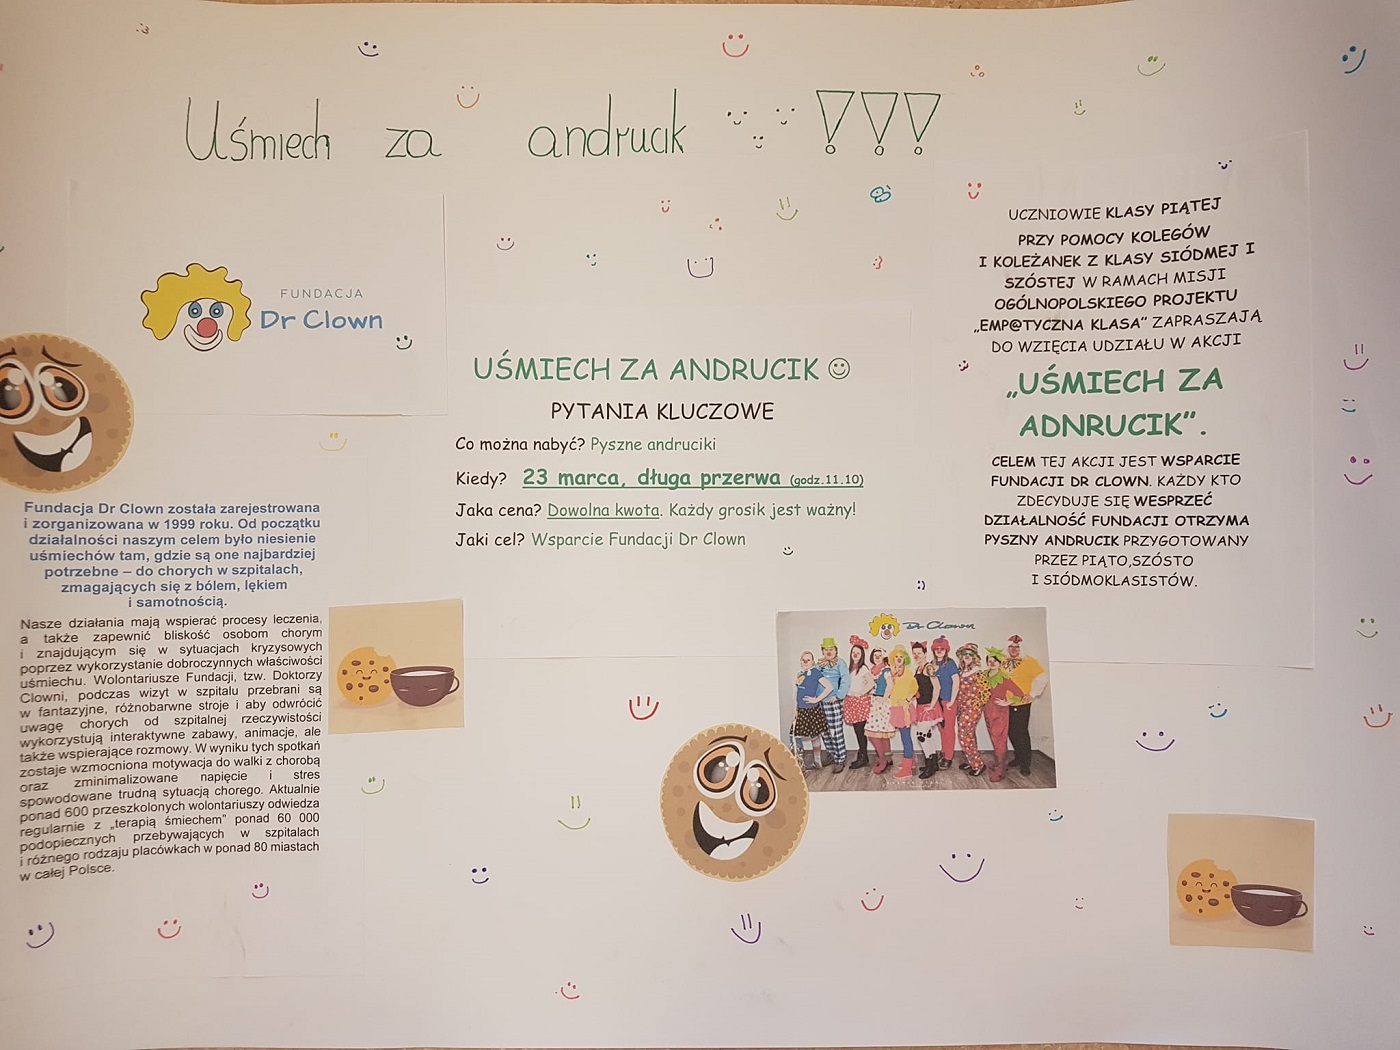 Uśmiech za andrucik !!!
FUNDACJA
Dr Clown
Fundacja Dr Clown została zarejestrowana
i zorganizowana w 1999 roku. Od początku
działalności naszym celem było niesienie
uśmiechów tam, gdzie są one najbardziej
potrzebne – do chorych w szpitalach,
zmagających się z bólem, lękiem
i samotnością.
Nasze działania mają wspierać procesy leczenia,
a także zapewnić bliskość osobom chorym
i znajdującym się w sytuacjach kryzysowych
poprzez wykorzystanie dobroczynnych właściwości
uśmiechu. Wolontariusze Fundacji, tzw. Doktorzy
Clowni, podczas wizyt w szpitalu przebrani są
w fantazyjne, różnobarwne stroje i aby odwrócić
uwagę chorych od szpitalnej rzeczywistości
wykorzystują interaktywne zabawy, animacje, ale
także wspierające rozmowy. W wyniku tych spotkań
zostaje wzmocniona motywacja do walki z chorobą
oraz zminimalizowane napięcie i stres
spowodowane trudną sytuacją chorego. Aktualnie
ponad 600 przeszkolonych wolontariuszy odwiedza
regularnie z „terapią śmiechem” ponad 60 000
podopiecznych przebywających w szpitalach
i różnego rodzaju placówkach w ponad 80 miastach
w całej Polsce.
UŚMIECH ZA ANDRUCIK ☺
PYTANIA KLUCZOWE
Co można nabyć? Pyszne andruciki
Kiedy? 23 marca, długa przerwa (godz.11.10)
Jaka cena? Dowolna kwota. Każdy grosik jest ważny!
Jaki cel? Wsparcie Fundacji Dr Clown
Dr Clown
UCZNIOWIE KLASY PIĄTEJ
PRZY POMOCY KOLEGÓW
I KOLEŻANEK Z KLASY SIÓDMEJ I
SZÓSTEJ W RAMACH MISJI
OGÓLNOPOLSKIEGO PROJEKTU
„EMP@TYCZNA KLASA” ZAPRASZAJĄ
DO WZIĘCIA UDZIAŁU W AKCJI
„UŚMIECH ZA
ADNRUCIK”.
CELEM TEJ AKCJI JEST WSPARCIE
FUNDACJI DR CLOWN. KAŻDY KTO
ZDECYDUJE SIĘ WESPRZEĆ
DZIAŁALNOŚĆ FUNDACJI OTRZYMA
PYSZNY ANDRUCIK PRZYGOTOWANY
PRZEZ PIĄTO,SZÓSTO
I SIÓDMOKLASISTÓW.